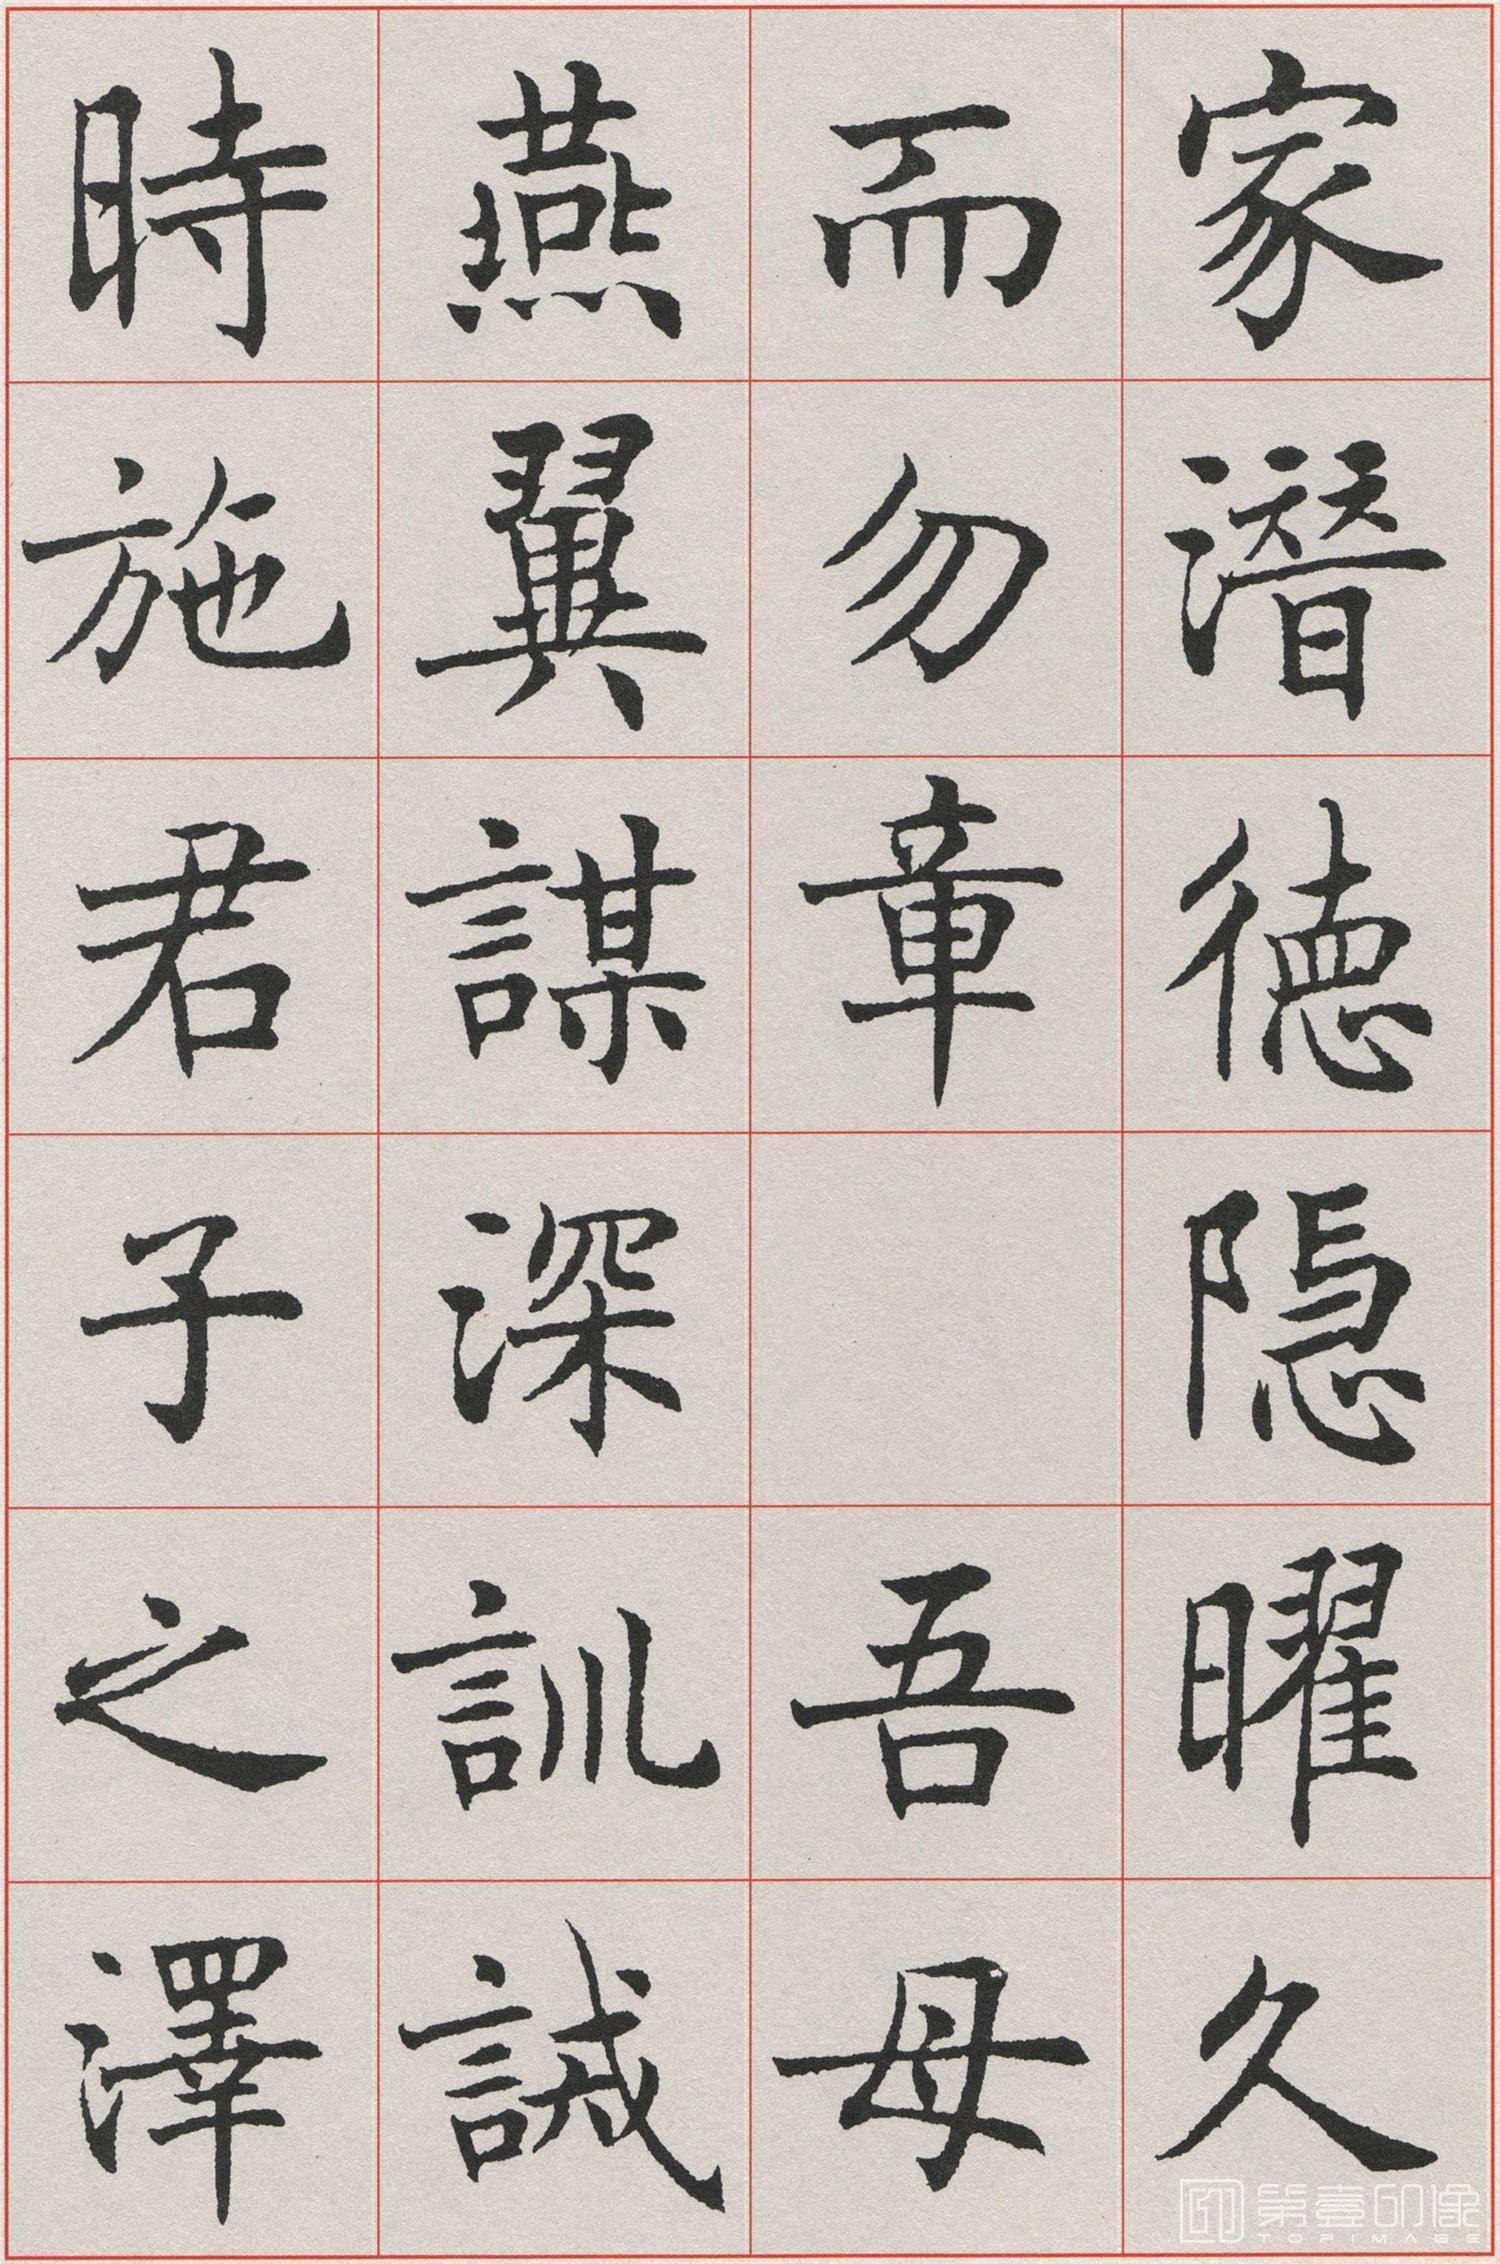 家潛德隱曜久
而勿章 吾母
燕翼謀深訓誡
時施君子之澤
第壹印像
TOPIMAGE